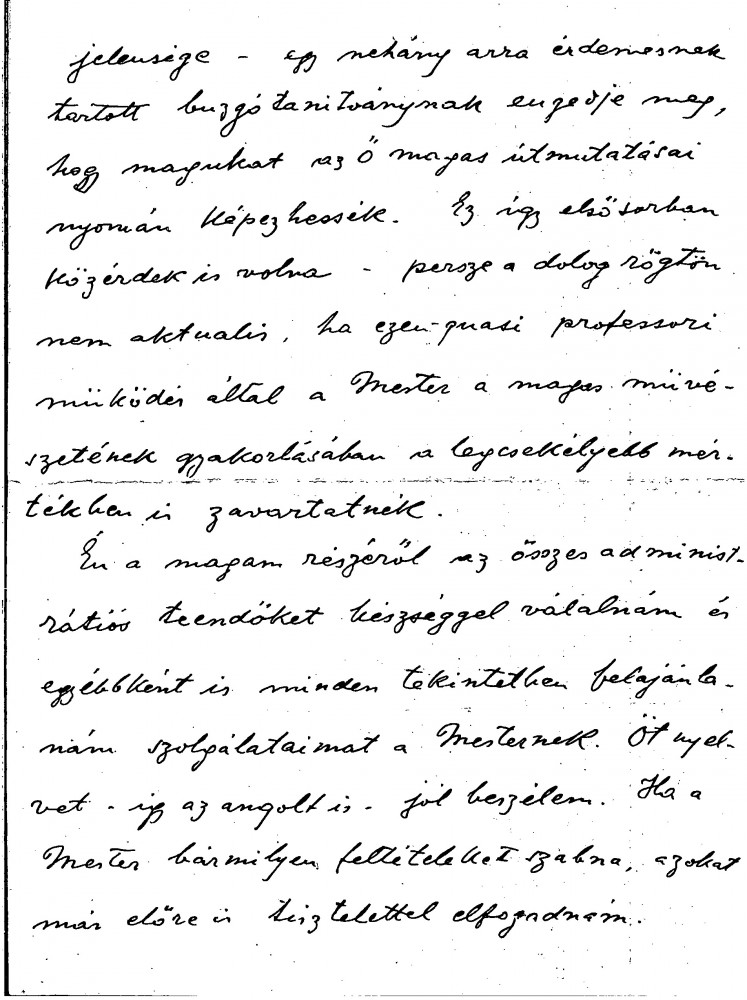 jelensége - egy nehány arra érdemesnek
tartott buzgó tanitványnak engedje meg,
hogy magukat az Ő magas útmutatásai
nyomán képezhessék. Ez igy elsősorban
közérdek is volna - persze a dolog rögtön
nem aktualis, ha ezen quasi professori
müködés által a Mester a magas müvé-
szetének gyakorlásában a legcsekélyebb mér-
tékben is zavartatnék.
Én a magam részéről az összes administ-
rátiós teendőket készséggel válalnám és
egyébbként is minden tekintetben felajánla-
nám szolgálataimat a Mesternek. Öt nyel-
vet - igy az angolt is - jól beszélem. Ha a
Mester bármilyen feltételeket szabna, azokat
már előre is tisztelettel elfogadnám.